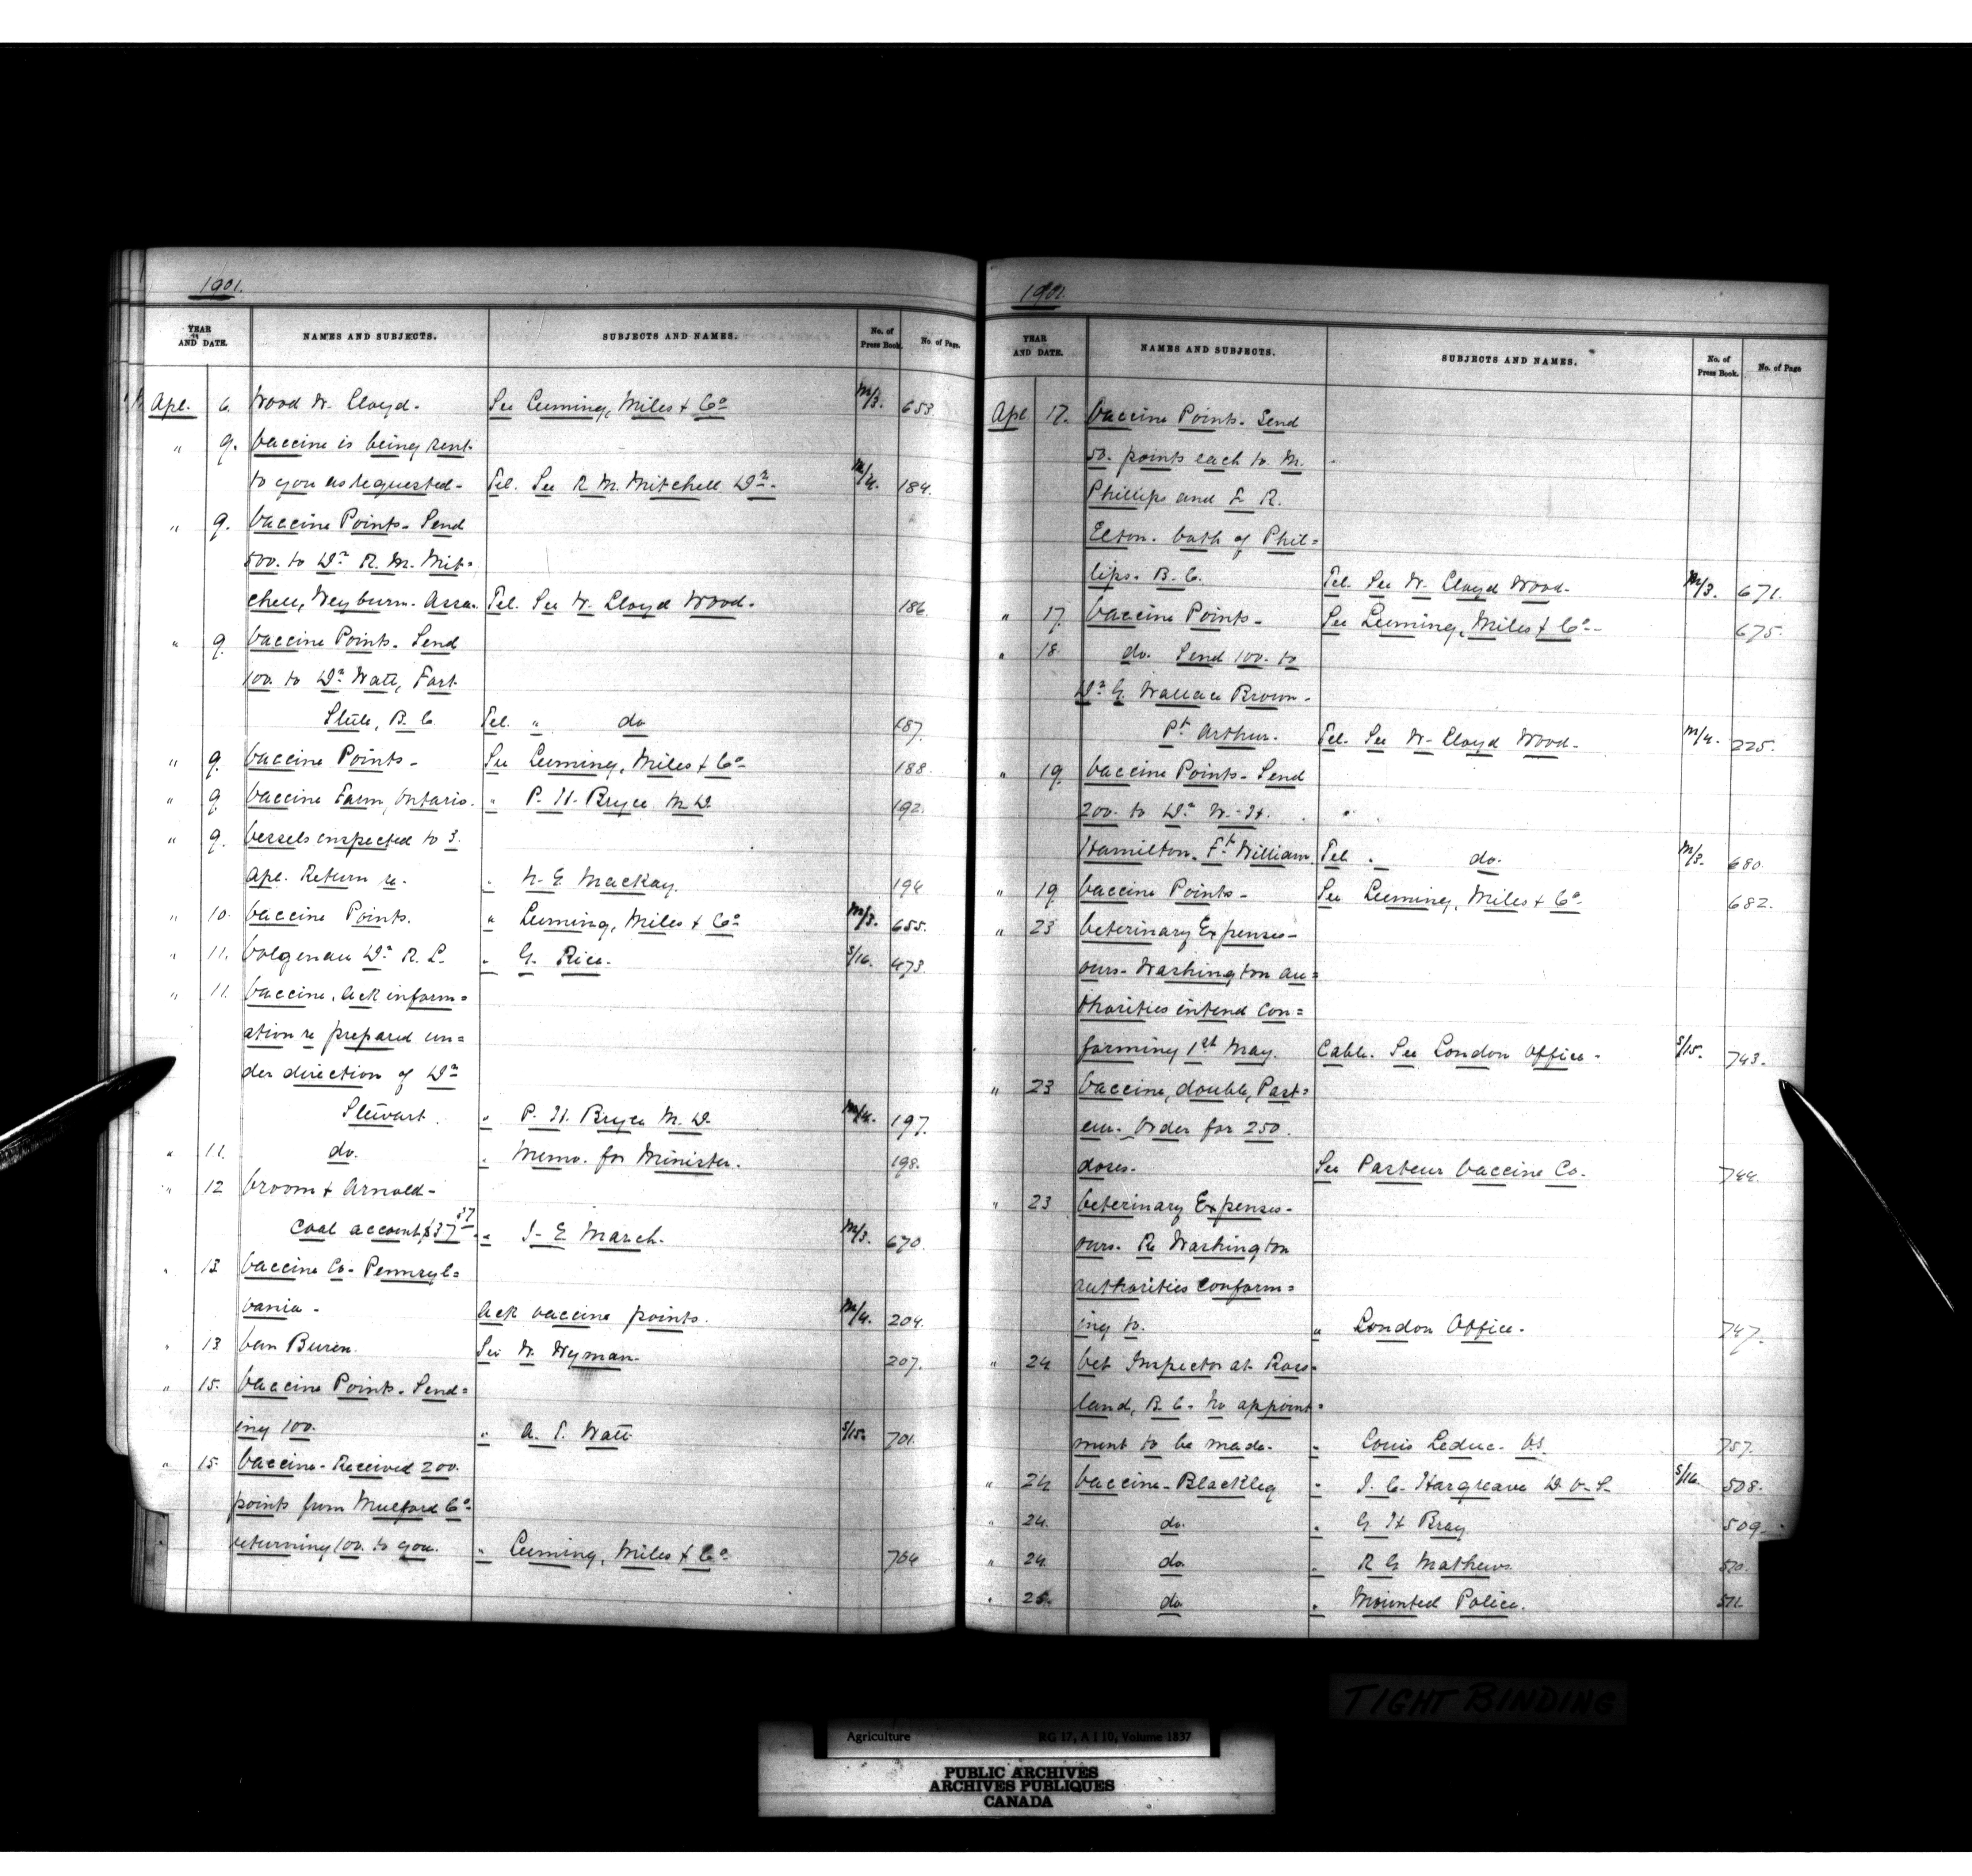 1901.
YEAR AND DATE. NAMES AND SUBJECTS. SUBJECTS AND NAMES. No. of Press Book. No. of Page.
Apl. 6. Wood W. Lloyd. See Leeming, Miles & Co M/3. 653
" 9. Vaccine is being sent
to you as requested. Tel. See R. M. Mitchell Dr. M/4. 184.
" 9. Vaccine Points. Send
500. to Dr R. M. Mit=
chell, Weyburn. Assa. Tel. See W. Lloyd Wood. 186.
" 9 Vaccine Points. Send
100. to Dr Watt, Fort
Steele, B. C. Tel. " do 187.
" 9. Vaccine Points. See Leeming, Miles & Co. 188.
" 9 Vaccine Farm, Ontario. " P. H. Bryce M.D. 192.
" 9. Vessels inspected to 3.
Apl. Return re. " N. E. Mackay. 194
" 10. Vaccine Points. " Leeming, Miles & Co M/3. 655.
" 11. Volgenau Dr R. L. " G. Rice. S/16. 473.
" 11. Vaccine, Ack inform=
ation re prepared un=
der direction of Dr
Stewart. " P. H. Bryce M.D. M/4. 197.
" 11. do. " Memo. for Minister. 198.
" 12 Vroom & Arnold.
Coal account $37 57 " J. E. March. M/3. 670.
" 13 Vaccine Co. Pennsyl=
vania. Ack vaccine points. M/4. 204.
" 13 Van Buren. See W. Wyman. 207.
" 15. Vaccine Points. Send=
ing 100. " A. T. Watt S/15. 701.
" 15. Vaccine. Received 200.
points from Mulford Co.
returning 100. to you. " Leeming, Miles & Co. 704
1901.
YEAR AND DATE. NAMES AND SUBJECTS. SUBJECTS AND NAMES. No. of Press Book. No. of Page
Apl. 17. Vaccine Points. Send
50. points each to M.
Phillips and F. R.
Elton. both of Phil=
lips. B. C. Tel. See W. Lloyd Wood. M/3. 671.
" 17. Vaccine Points. See Leeming, Miles & Co. 675.
" 18. do. Send 100. to
Dr G. Wallace Brown.
Pt Arthur. Tel. See W. Lloyd Wood. M/4. 225.
" 19. Vaccine Points. Send
200. to Dr W. H.
Hamilton. Ft William. Tel. " do. M/3. 680.
" 19 Vaccine Points. See Leeming, Miles & Co. 682.
" 23 Veterinary Expenses.
ours. Washington au=
thorities intend con=
forming 1st May. Cable. See London Office. S/15. 743.
" 23 Vaccine, double, Past=
eur. Order for 250.
doses. See Pasteur Vaccine Co. 744.
" 23 Veterinary Expenses.
ours. Re Washington
authorities conform=
ing to. " London Office. 747.
" 24 Vet Inspector at Ross=
land, B. C. No appoint=
ment to be made. " Louis Leduc. VS. 757.
" 24 Vaccine. Blackleg " J. C. Hargreave D.V.S. S/16. 508.
" 24. do. " G H Bray 509.
" 24. do " R G Mathews 510.
" 25. do " Mounted Police. 511.
TIGHT BINDING
Agriculture RG 17, A I 10, Volume 1837
PUBLIC ARCHIVES
ARCHIVES PUBLIQUES
CANADA